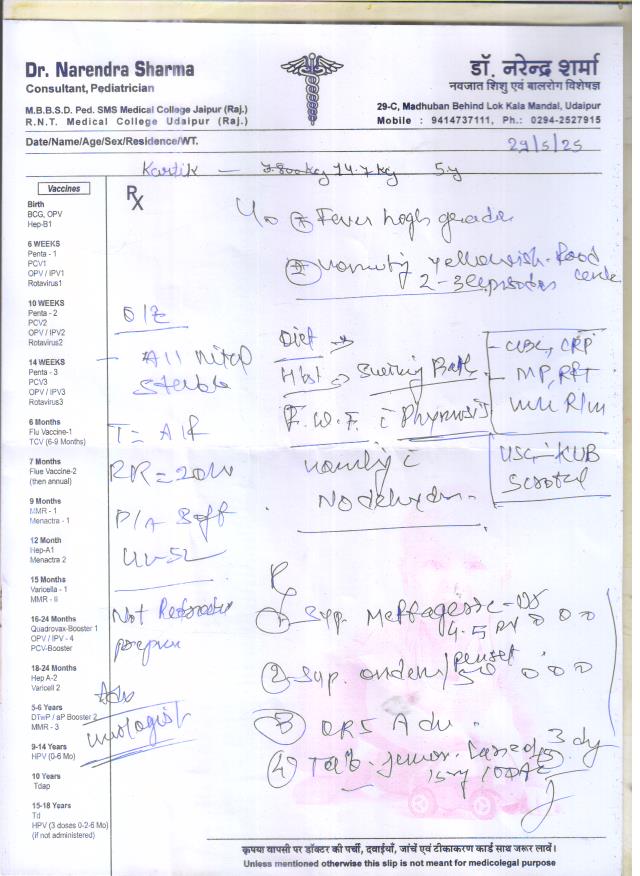 Dr. Narendra Sharma
Consultant, Pediatrician
M.B.B.S.D. Ped. SMS Medical College Jaipur (Raj.)
R.N.T. Medical College Udaipur (Raj.)
डॉ. नरेन्द्र शर्मा
नवजात शिशु एवं बालरोग विशेषज्ञ
29-C, Madhuban Behind Lok Kala Mandal, Udaipur
Mobile : 9414737111, Ph.: 0294-2527915
Date/Name/Age/Sex/Residence/WT.
29/5/25
Kartik — 14.7 kg 5y
Vaccines
Birth
BCG, OPV
Hep-B1
6 WEEKS
Penta - 1
PCV1
OPV / IPV1
Rotavirus1
10 WEEKS
Penta - 2
PCV2
OPV / IPV2
Rotavirus2
14 WEEKS
Penta - 3
PCV3
OPV / IPV3
Rotavirus3
6 Months
Flu Vaccine-1
TCV (6-9 Months)
7 Months
Flue Vaccine-2
(then annual)
9 Months
MMR - 1
Menactra - 1
12 Month
Hep-A1
Menactra 2
15 Months
Varicella - 1
MMR - II
16-24 Months
Quadrovax-Booster 1
OPV / IPV - 4
PCV-Booster
18-24 Months
Hep A-2
Varicell 2
5-6 Years
DTwP / aP Booster 2
MMR - 3
9-14 Years
HPV (0-6 Mo)
10 Years
Tdap
15-18 Years
Td
HPV (3 doses 0-2-6 Mo)
(if not administered)
Rx
Fever high grade
vomiting yellowish food
2-3 episodes
O/E
All vital
stable
RR = 20
P/A Soft
Not
Adv
urologist
Diet
Swing Bath
Vomiting
No dehydn.
CBC, CRP
MP, RFT
Urine R/m
USG - KUB
Scrotal
Rx
1 Syp. Meftagesic-DS
4.5
2 Syp. ondem
3 ORS Adv.
4 Tab. Junior Lanzol 3 dy
15mg
कृपया वापसी पर डॉक्टर की पर्ची, दवाईयाँ, जांचें एवं टीकाकरण कार्ड साथ जरूर लावें।
Unless mentioned otherwise this slip is not meant for medicolegal purpose